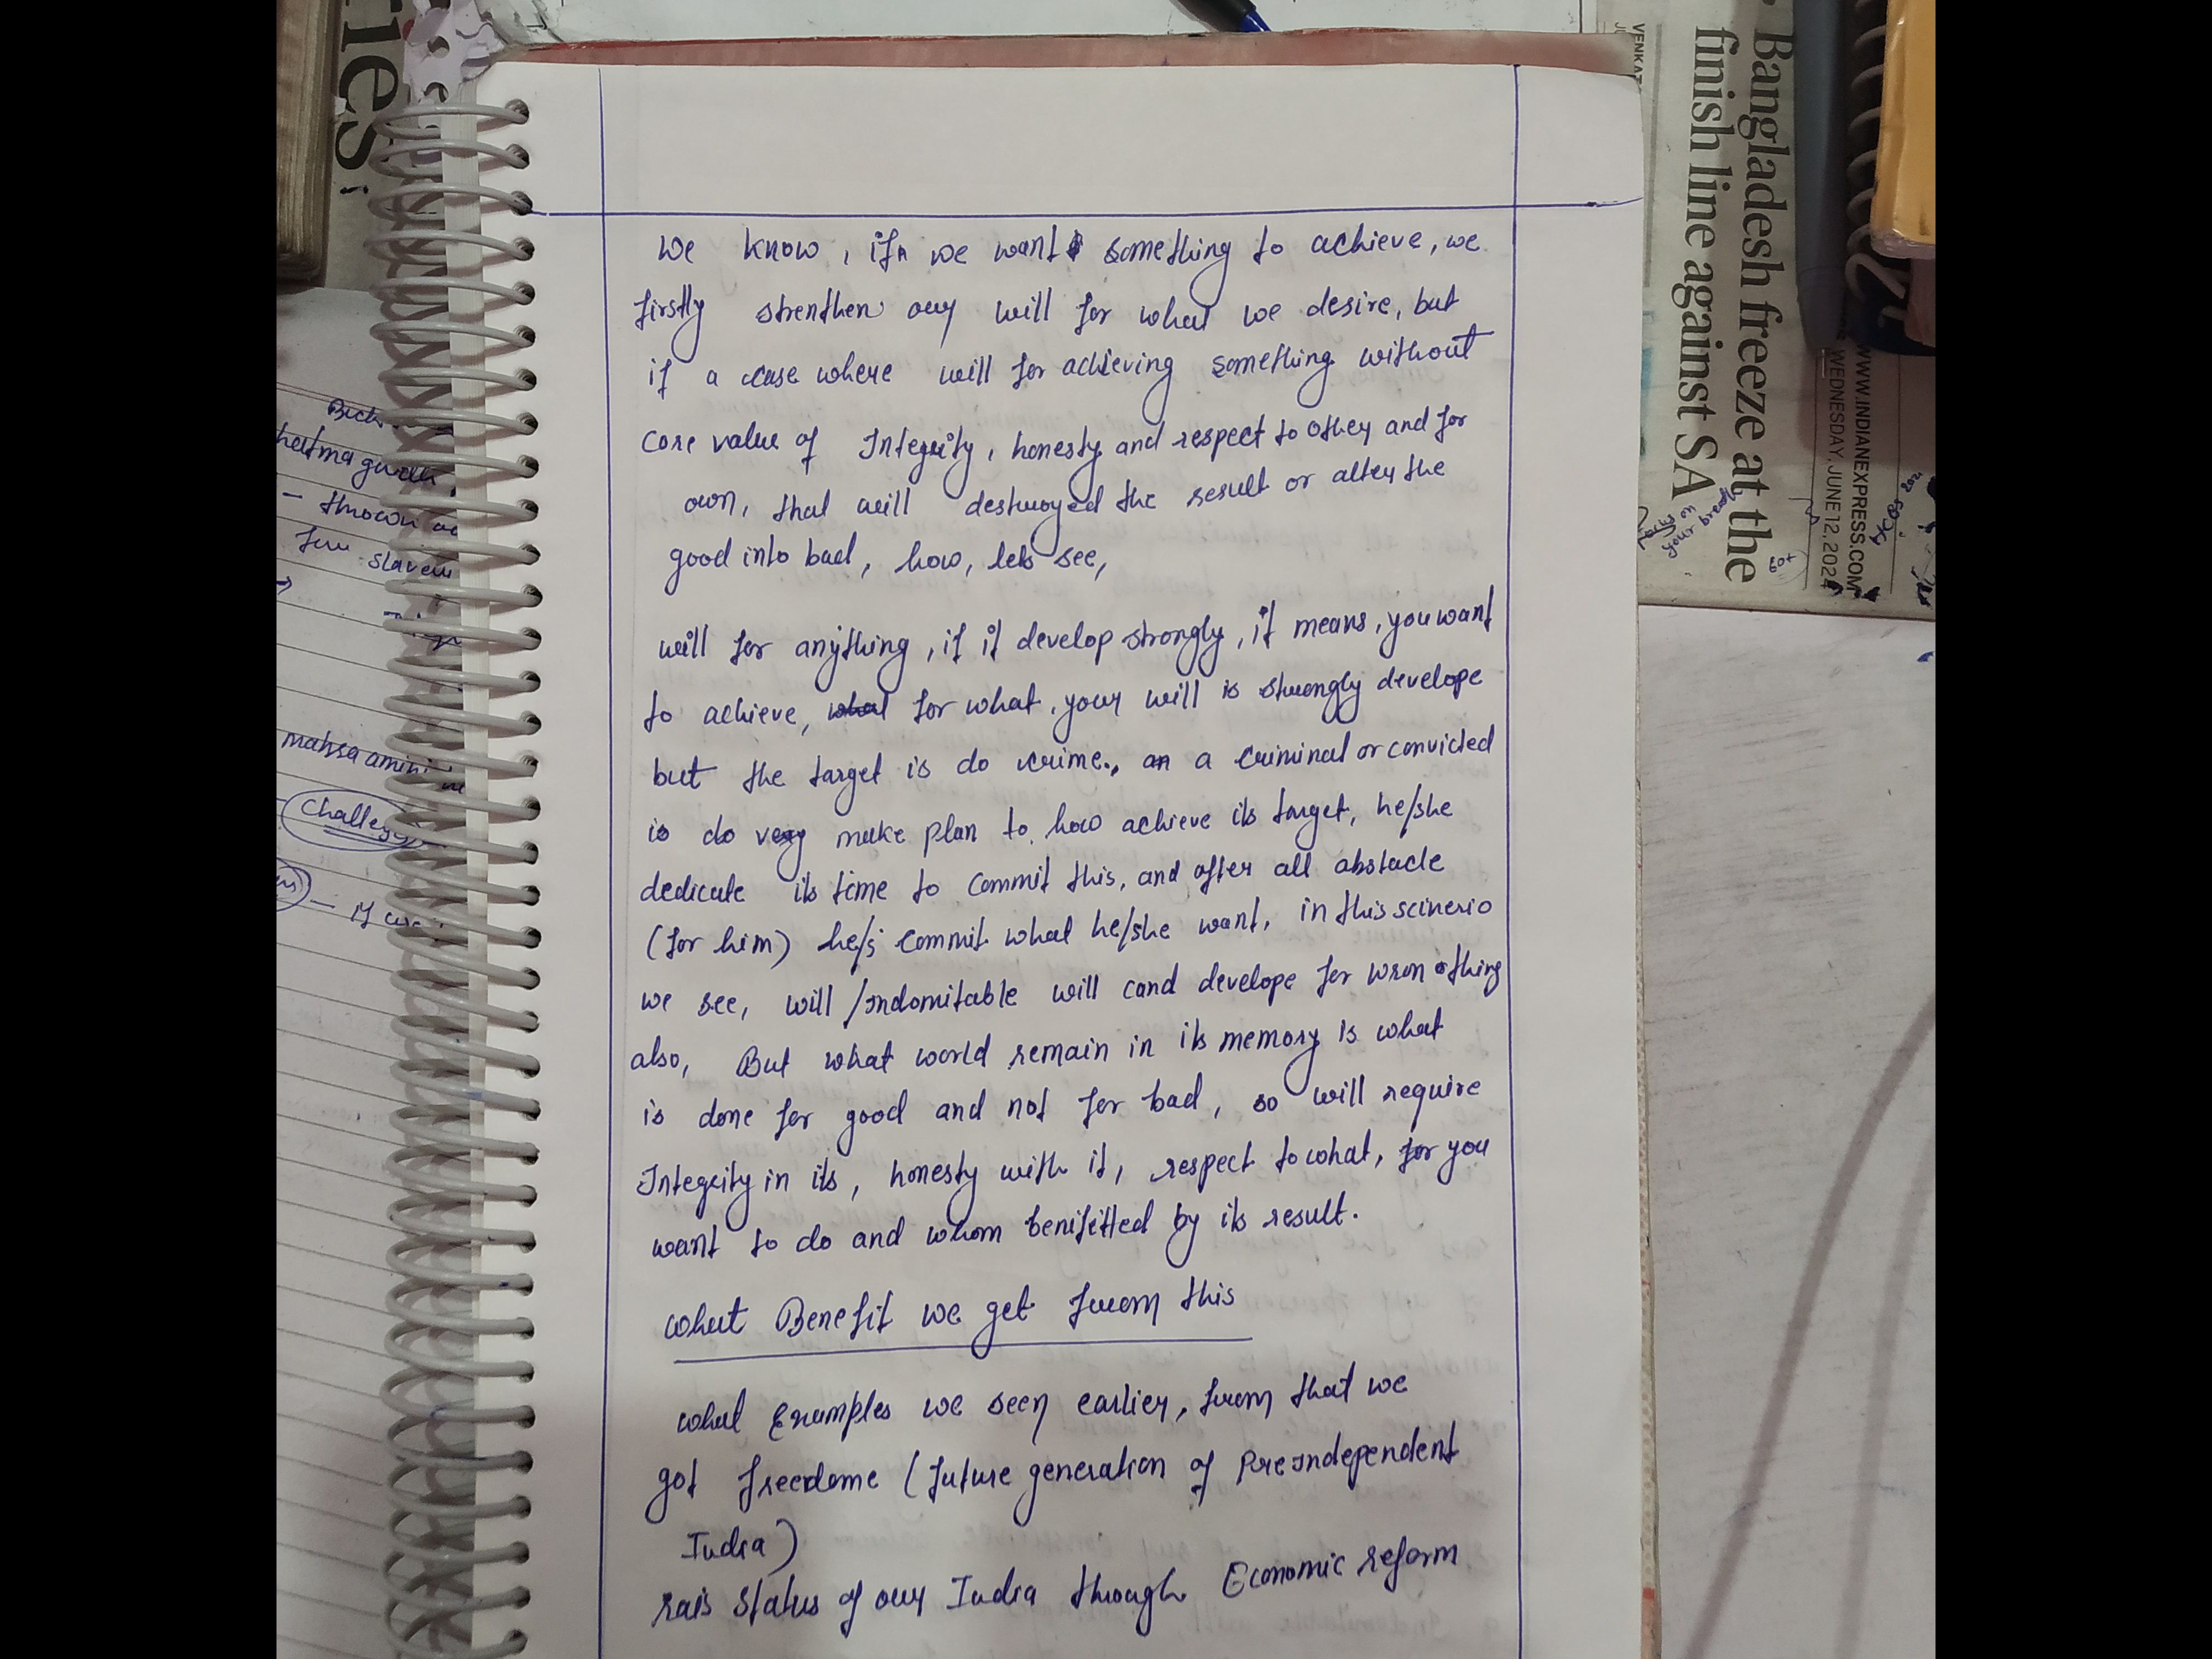 we know, if we want something to achieve, we
firstly strenthen our will for what we desire, but
if a case where will for achieving something without
core value of Integrity, honesty and respect to other and for
own, that will destroyed the result or alter the
good into bad, how, lets see,
will for anything, if it develop strongly, it means, you want
to achieve, what for what. your will is strongly develope
but the target is do crime., an a criminal or convicted
is do very make plan to how achieve its target, he/she
dedicate its time to commit this, and after all abstacle
(for him) he/s commit what he/she want, in this scinerio
we see, will /indomitable will cand develope for wron thing
also, But what world remain in its memory is what
is done for good and not for bad, so will require
Integrity in its, honesty with it, respect to what, for you
want to do and whom benifitted by its result.
what Benefit we get from this
what Examples we seen earlier, from that we
got freedome (future generation of PreIndependent
India)
rais status of our India through Economic reform
Bangladesh freeze at the
finish line against SA
VENKAT
WWW.INDIANEXPRESS.COM
WEDNESDAY, JUNE 12, 2024
Focus on
your breath
ries,
hatma
- thrown
few slavery
mahsa amini
Challeg
- if